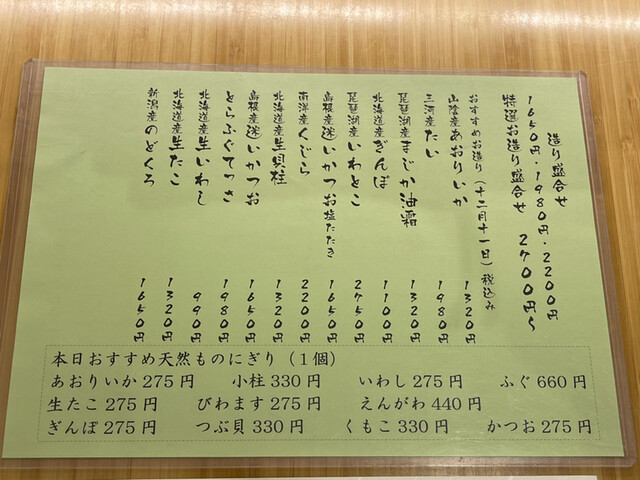 造り盛合せ
1650円・1980円・2200円
特選お造り盛合せ 2700円〜
おすすめお造り(十二月十一日)税込み
山陰産あおりいか 1320円
三河産たい 1980円
琵琶湖産まじか油霜 1320円
北海道産ぎんぽ 1100円
琵琶湖産いわとこ 2750円
島根産迷いかつお塩たたき 1650円
南洋産くじら 2200円
北海道産生貝柱 1320円
島根産迷いかつお 1650円
とらふぐてっさ 1980円
北海道産生いわし 990円
北海道産生たこ 1320円
新潟産のどくろ 1650円
本日おすすめ天然ものにぎり(1個)
あおりいか275円 小柱330円 いわし275円 ふぐ660円
生たこ275円 びわます275円 えんがわ440円
ぎんぽ275円 つぶ貝330円 くもこ330円 かつお275円